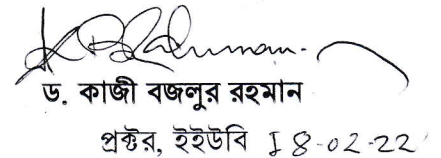 ড. কাজী বজলুর রহমান
প্রক্টর, ইইউবি 18-02-22